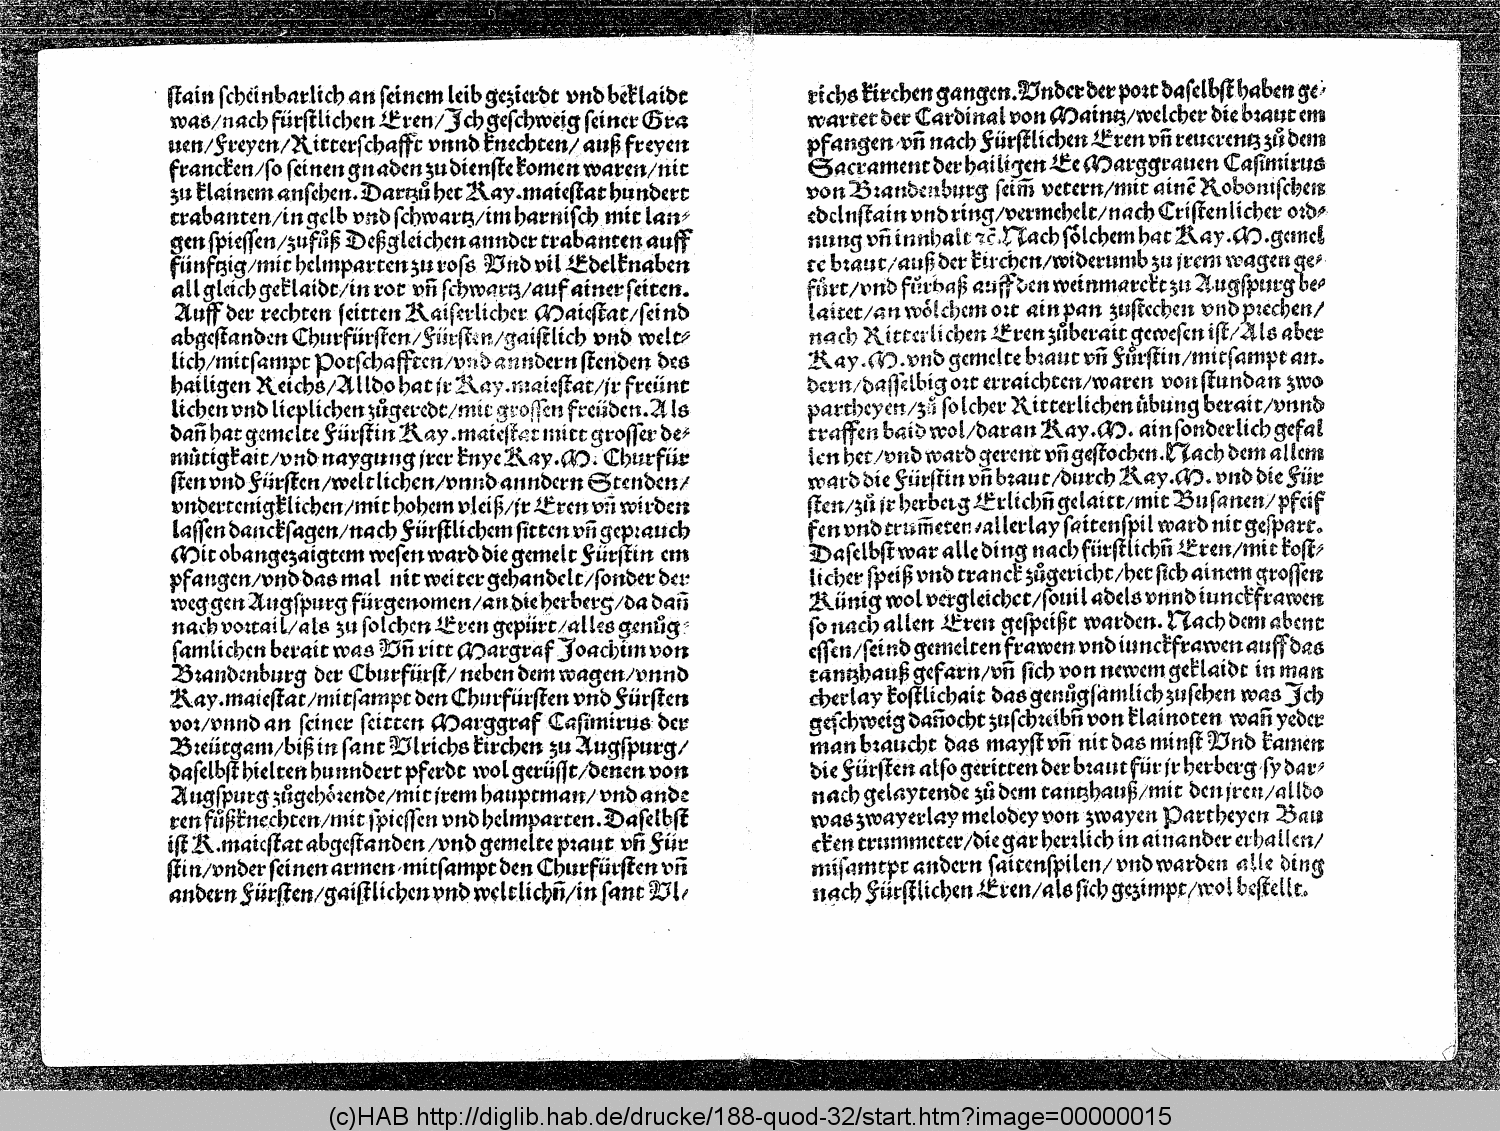 stain scheinbarlich an seinem leib gezierdt vnd beklaidt
was/nach fürstlichen Eren/Jch geschweig seiner Gra
uen/Freyen/Ritterschafft vnnd knechten/ auß freyen
francken/so seinen gnaden zu dienste komen waren/nit
zu klainem ansehen. Dartzů het Kay.maiestat hundert
trabanten/in gelb vnd schwartz/im harnisch mit lan⸗
gen spiessen/zufůß Deßgleichen annder trabanten auff
fünftzig/mit helmparten zu ross Vnd vil Edelknaben
all gleich geklaidt/in rot vñ schwartz/auf ainer seiten.
Auff der rechten seitten Kaiserlicher Maiestat/seind
abgestanden Churfürsten/Fürsten/gaistlich vnd welt⸗
lich/mitsampt Potschafften/vnd anndern stenden des
hailigen Reichs/Alldo hat jr Kay.maiestat/jr freünt
lichen vnd lieplichen zůgeredt/mit grossen freüden.Als
dañ hat gemelte Fürstin Kay.maiestat mitt grosser de⸗
mütigkait/vnd naygung jrer knye Kay.M. Churfür
sten vnd Fürsten/weltlichen/vnnd anndern Stenden/
vndertenigklichen/mit hohem vleiß/jr Eren vñ wirden
lassen dancksagen/nach Fürstlichem sitten vñ geprauch
Mit obangezaigtem wesen ward die gemelt Fürstin em
pfangen/vnd das mal nit weiter gehandelt/sonder der
weg gen Augspurg fürgenomen/an die herberg/da dañ
nach vortail/als zu solchen Eren gepürt/alles genůg⸗
samlichen berait was Vñ ritt Margraf Joachim von
Brandenburg der Churfürst/ neben dem wagen/vnnd
Kay.maiestat/mitsampt den Churfürsten vnd Fürsten
vor/vnnd an seiner seitten Marggraf Casimirus der
Breütgam/biß in sant Vlrichs kirchen zu Augspurg/
daselbst hielten hunndert pferdt wol gerüsst/denen von
Augspurg zůgehörende/mit jrem hauptman/ vnd ande
ren fůßknechten/mit spiessen vnd helmparten.Daselbst
ist K.maiestat abgestanden /vnd gemelte praut vñ Für
stin/vnder seinen armen⸗mitsampt den Churfürsten vñ
andern Fürsten/gaistlichen vnd weltlichñ/in sant Vl⸗
richs kirchen gangen.Vnder der port daselbst haben ge⸗
wartet der Cardinal von Maintz/welcher die braut em
pfangen vñ nach Fürstlichen Eren vñ reuerentz zů dem
Sacrament der hailigen Ee Marggrauen Casimirus
von Brandenburg seim̃ vetern/mit ainẽ Robonischen
edelnstain vnd ring/vermehelt/nach Cristenlicher ord⸗
nung vñ innhalt ꝛc̃.Nach sölchem hat Kay.M.gemel
te braut/auß der kirchen/widerumb zu jrem wagen ge⸗
fürt/vnd fürbaß auff den weinmarckt zu Augspurg be⸗
laitet/an wölchem ort ain pan zustechen vnd prechen/
nach Ritterlichen Eren zůberait gewesen ist/Als aber
Kay.M.vnd gemelte braut vñ Fürstin/mitsampt an.
dern/dasselbig ort erraichten/waren von stundan zwo
partheyen/zů solcher Ritterlichen übung berait/vnnd
traffen baid wol/daran Kay.M. ain sonderlich gefal
len het/vnd ward gerent vñ gestochen.Nach dem allem
ward die Fürstin vñ braut/durch Kay.M. vnd die Für
sten/zů jr herberg Erlichñ gelaitt/mit Busanen/pfeif
fen vnd trum̃eten/allerlay saitenspil ward nit gespart.
Daselbst war alle ding nach fürstlichñ Eren/mit kost⸗
licher speiß vnd tranck zůgericht/het sich ainem grossen
Künig wol vergleichet/souil adels vnnd iunckfrawen
so nach allen Eren gespeißt warden. Nach dem abent
essen/seind gemelten frawen vnd iunckfrawen auff das
tantzhauß gefarn/vñ sich von newem geklaidt in man
cherlay kostlichait das genůgsamlich zusehen was Jch
geschweig dañocht zuschreibñ von klainoten wañ yeder
man braucht das mayst vñ nit das minst Vnd kamen
die Fürsten also geritten der braut für jr herberg sy dar⸗
nach gelaytende zů dem tantzhauß/mit den jren/alldo
was zwayerlay melodey von zwayen Partheyen Bau
cken trummeter/die gar herzlich in ainander erhallen/
misamtpt andern saitenspilen/ vnd warden alle ding
nach Fürstlichen Eren/als sich gezimpt/wol bestellt.
(c)HAB http://diglib.hab.de/drucke/188-quod-32/start.htm?image=00000015